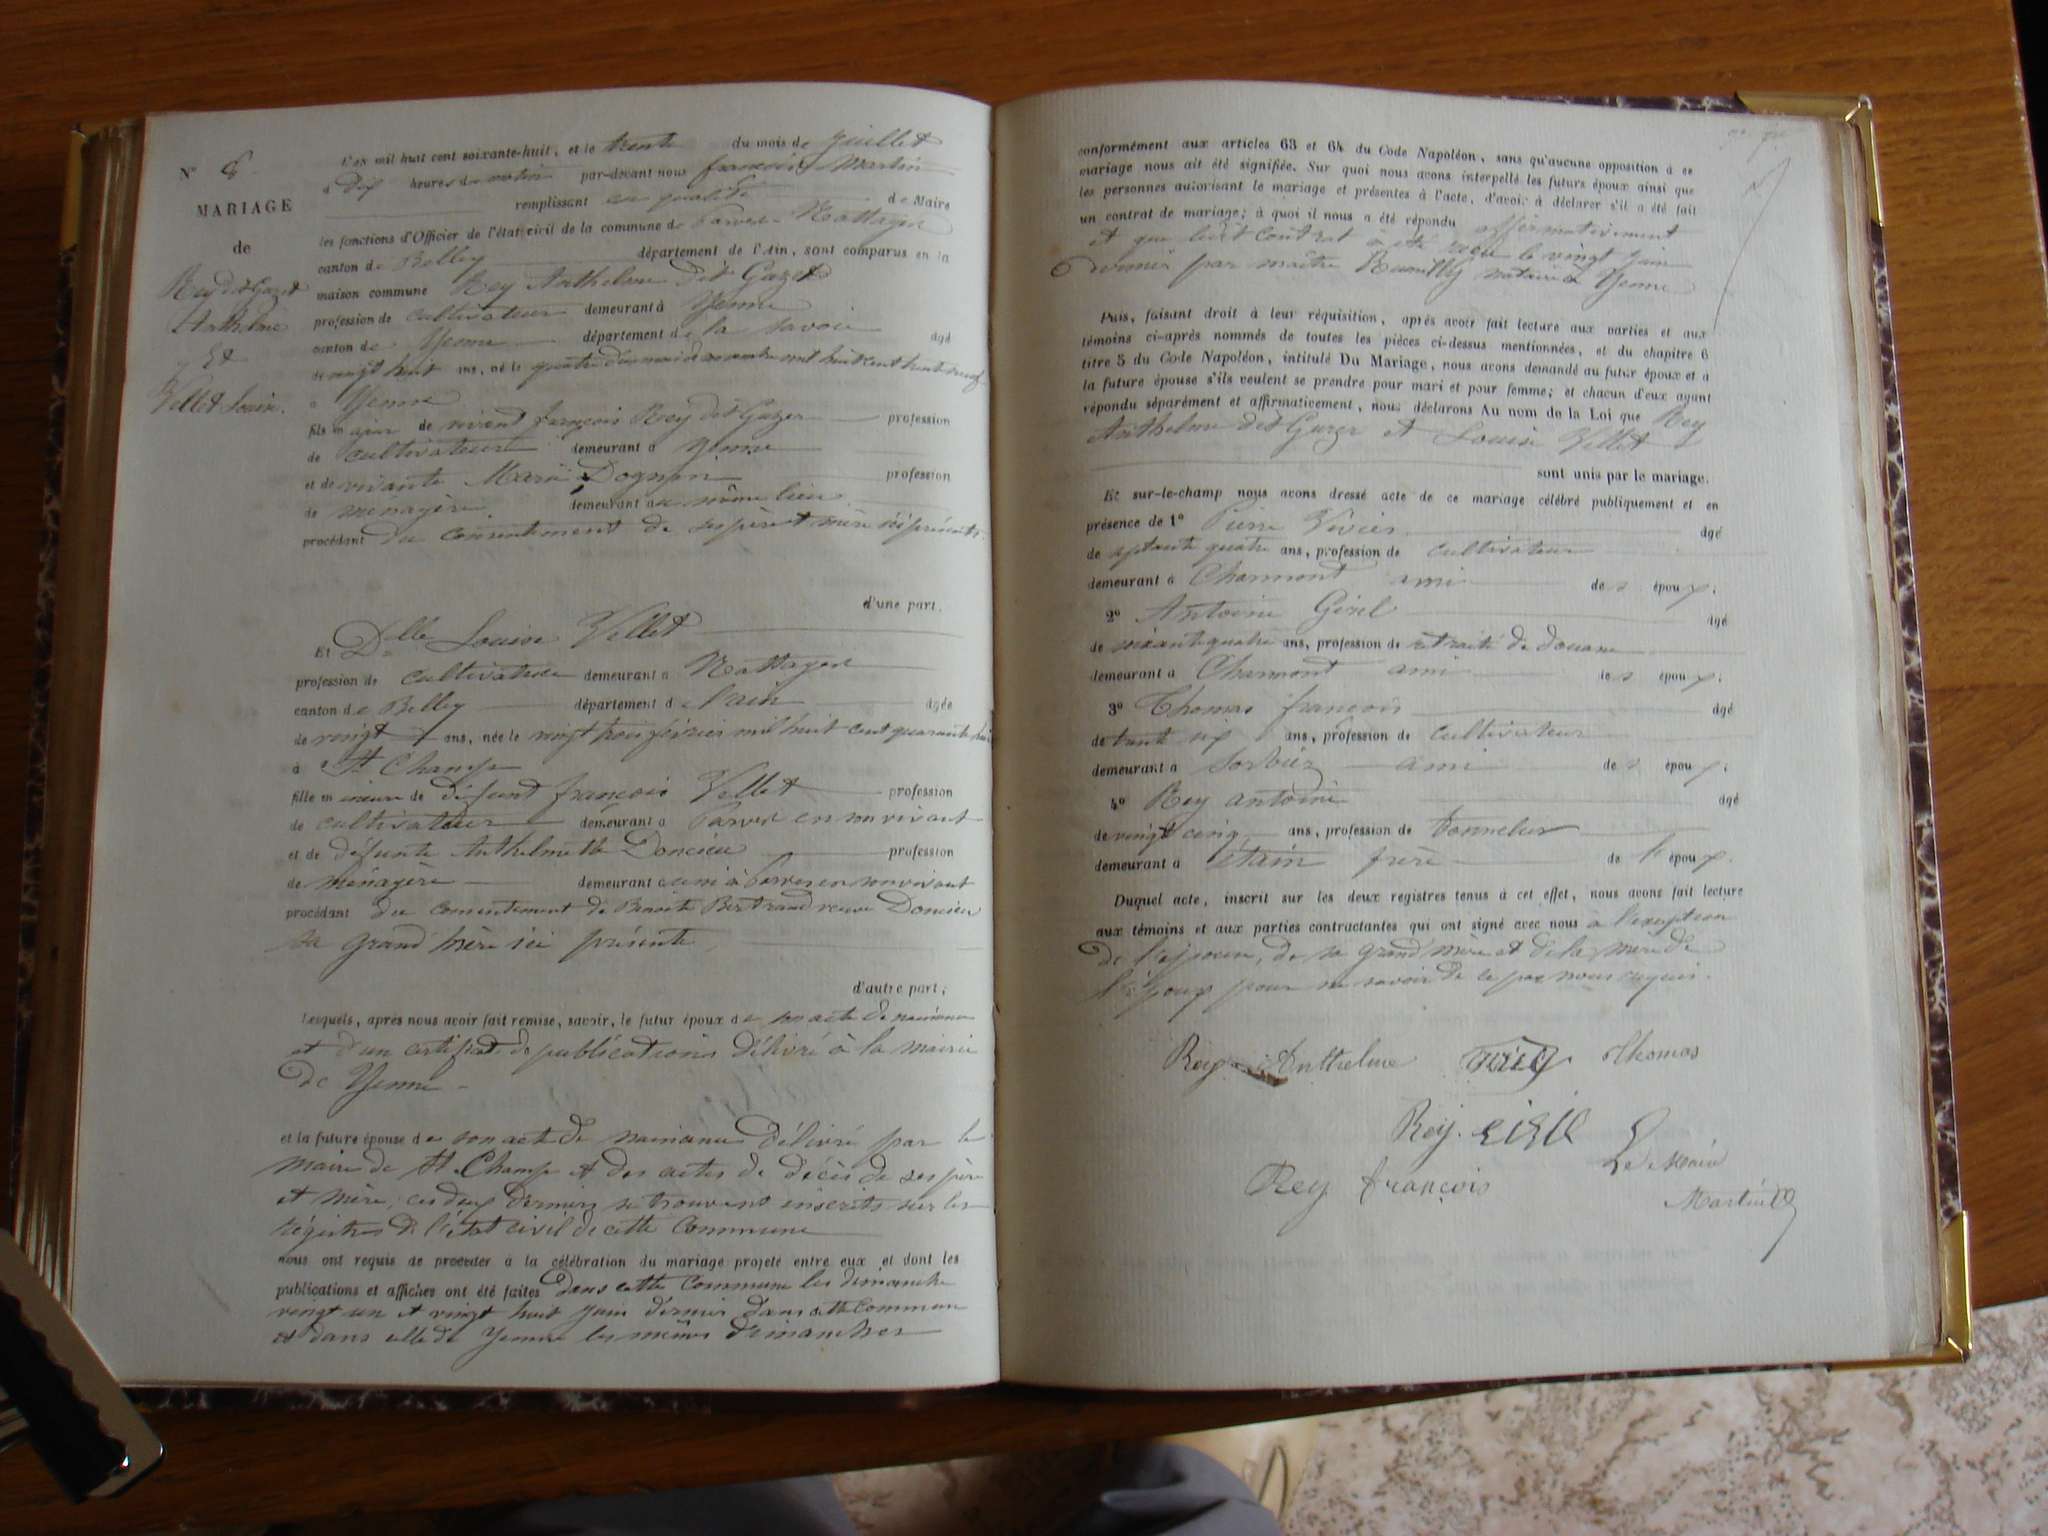 N° 8
MARIAGE
de
Rey dit Gazet
Anthelme
Et
Vellet Louise.
L'an mil huit cent soixante-huit, et le trente du mois de Juillet
à dix heures du matin par-devant nous françois Martin
remplissant en qualité de Maire
les fonctions d'Officier de l'état civil de la commune de Parves-Nattages
canton de Belley département de l'Ain, sont comparus en la
maison commune Rey Anthelme dit Gazet
profession de cultivateur demeurant à Yenne
canton de Yenne département de la Savoie âgé
de vingt huit ans, né le quatre du mois de mil huit cent trente neuf
à Yenne
fils majeur de vivant françois Rey dit Gazet profession
de cultivateur demeurant à Yenne
et de vivante Marie Dognin profession
de ménagère. demeurant au même lieu
procédant du consentement de ses père et mère ici présents.
d'une part.
Et Dlle Louise Vellet
profession de cultivatrice demeurant à Nattages
canton de Belley département de l'ain âgée
de vingt ans, née le vingt trois février mil huit cent quarante huit
à St Champ
fille mineure de défunt françois Vellet profession
de cultivateur demeurant à Parves en son vivant
et de défunte Anthelmette Doncieu profession
de ménagère demeurant aussi à Parves en son vivant
procédant du consentement de Benoite Bertrand veuve Doncieu
sa grand'mère ici présente,
d'autre part;
Lesquels, après nous avoir fait remise, savoir, le futur époux de son acte de naissance
et d'un certificat de publications délivré à la mairie
de Yenne -
et la future épouse de son acte de naissance délivré par le
maire de St. Champ et des actes de décès de ses père
et mère, ces deux derniers se trouvent inscrits sur les
régistres de l'état civil de cette Commune
nous ont requis de procéder à la célébration du mariage projeté entre eux et dont les
publications et affiches ont été faites dans cette Commune les dimanche
vingt un et vingt huit juin dernier dans cette Commune
et dans celle de Yenne les mêmes dimanches
conformément aux articles 63 et 64 du Code Napoléon, sans qu'aucune opposition à ce
mariage nous ait été signifiée. Sur quoi nous avons interpellé les futurs époux ainsi que
les personnes autorisant le mariage et présentes à l'acte, d'avoir à déclarer s'il a été fait
un contrat de mariage; à quoi il nous a été répondu affirmativement
et que ledit contrat à été reçu le vingt juin
dernier par maître Rumilly notaire à Yenne
Puis, faisant droit à leur réquisition, après avoir fait lecture aux parties et aux
témoins ci-après nommés de toutes les pièces ci-dessus mentionnées, et du chapitre 6
titre 5 du Code Napoléon, intitulé Du Mariage, nous avons demandé au futur époux et à
la future épouse s'ils veulent se prendre pour mari et pour femme; et chacun d'eux ayant
répondu séparément et affirmativement, nous déclarons Au nom de la Loi que Rey
Anthelme dit Gazet et Louise Vellet
sont unis par le mariage.
Et sur-le-champ nous avons dressé acte de ce mariage célébré publiquement et en
présence de 1° Pierre Vivier âgé
de septante quatre ans, profession de cultivateur
demeurant à Charmont ami des époux.
2° Antoine Girel âgé
de soixante quatre ans, profession de retraité de douane
demeurant à Charmont ami des époux.
3° Thomas françois âgé
de trente six ans, profession de cultivateur
demeurant à Sorbier ami des époux.
4° Rey antoine âgé
de vingt cinq ans, profession de tonnelier
demeurant à Etain frère de l'époux.
Duquel acte, inscrit sur les deux registres tenus à cet effet, nous avons fait lecture
aux témoins et aux parties contractantes qui ont signé avec nous à l'exeption
de l'épouse, de sa grand'mère et de la mère de
l'époux pour ne savoir de ce par nous requis.
Rey Anthelme Thomas
Rey. GIREL
Le Maire
Rey françois
Martin